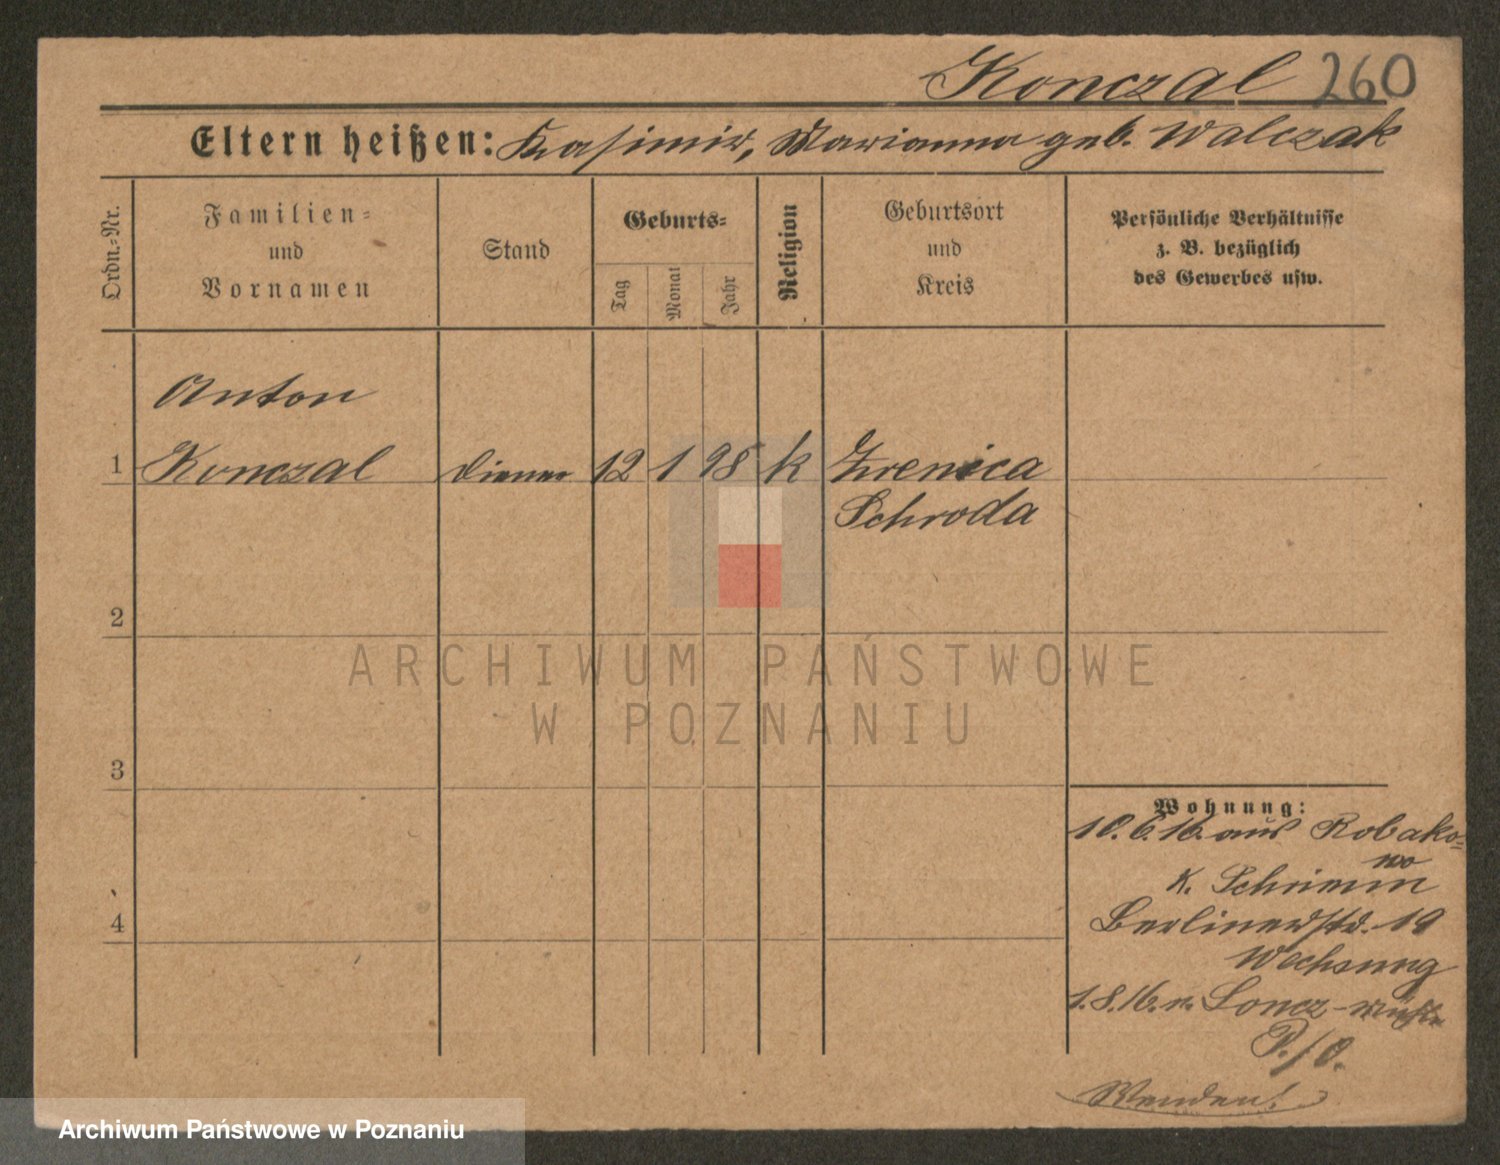 Konczal 260
Eltern heißen: Kasimir, Marianna geb. Walczak
Ordn.-Nr.
Familien-
und
Vornamen
Stand
Geburts-
Tag
Monat
Jahr
Religion
Geburtsort
und
Kreis
Persönliche Verhältnisse
z. B. bezüglich
des Gewerbes usw.
Anton
1 Konczal Diener 12 1 98 k Zrenica
Schroda
2
3
4
Wohnung:
10.6.16. aus Robako-
wo
K. Schrimm
Berlinerstr. 19
Wechsung
1.8.16. n. Loncz-mühle
P./O.
Wenden!
ARCHIWUM PAŃSTWOWE
W POZNANIU
Archiwum Państwowe w Poznaniu